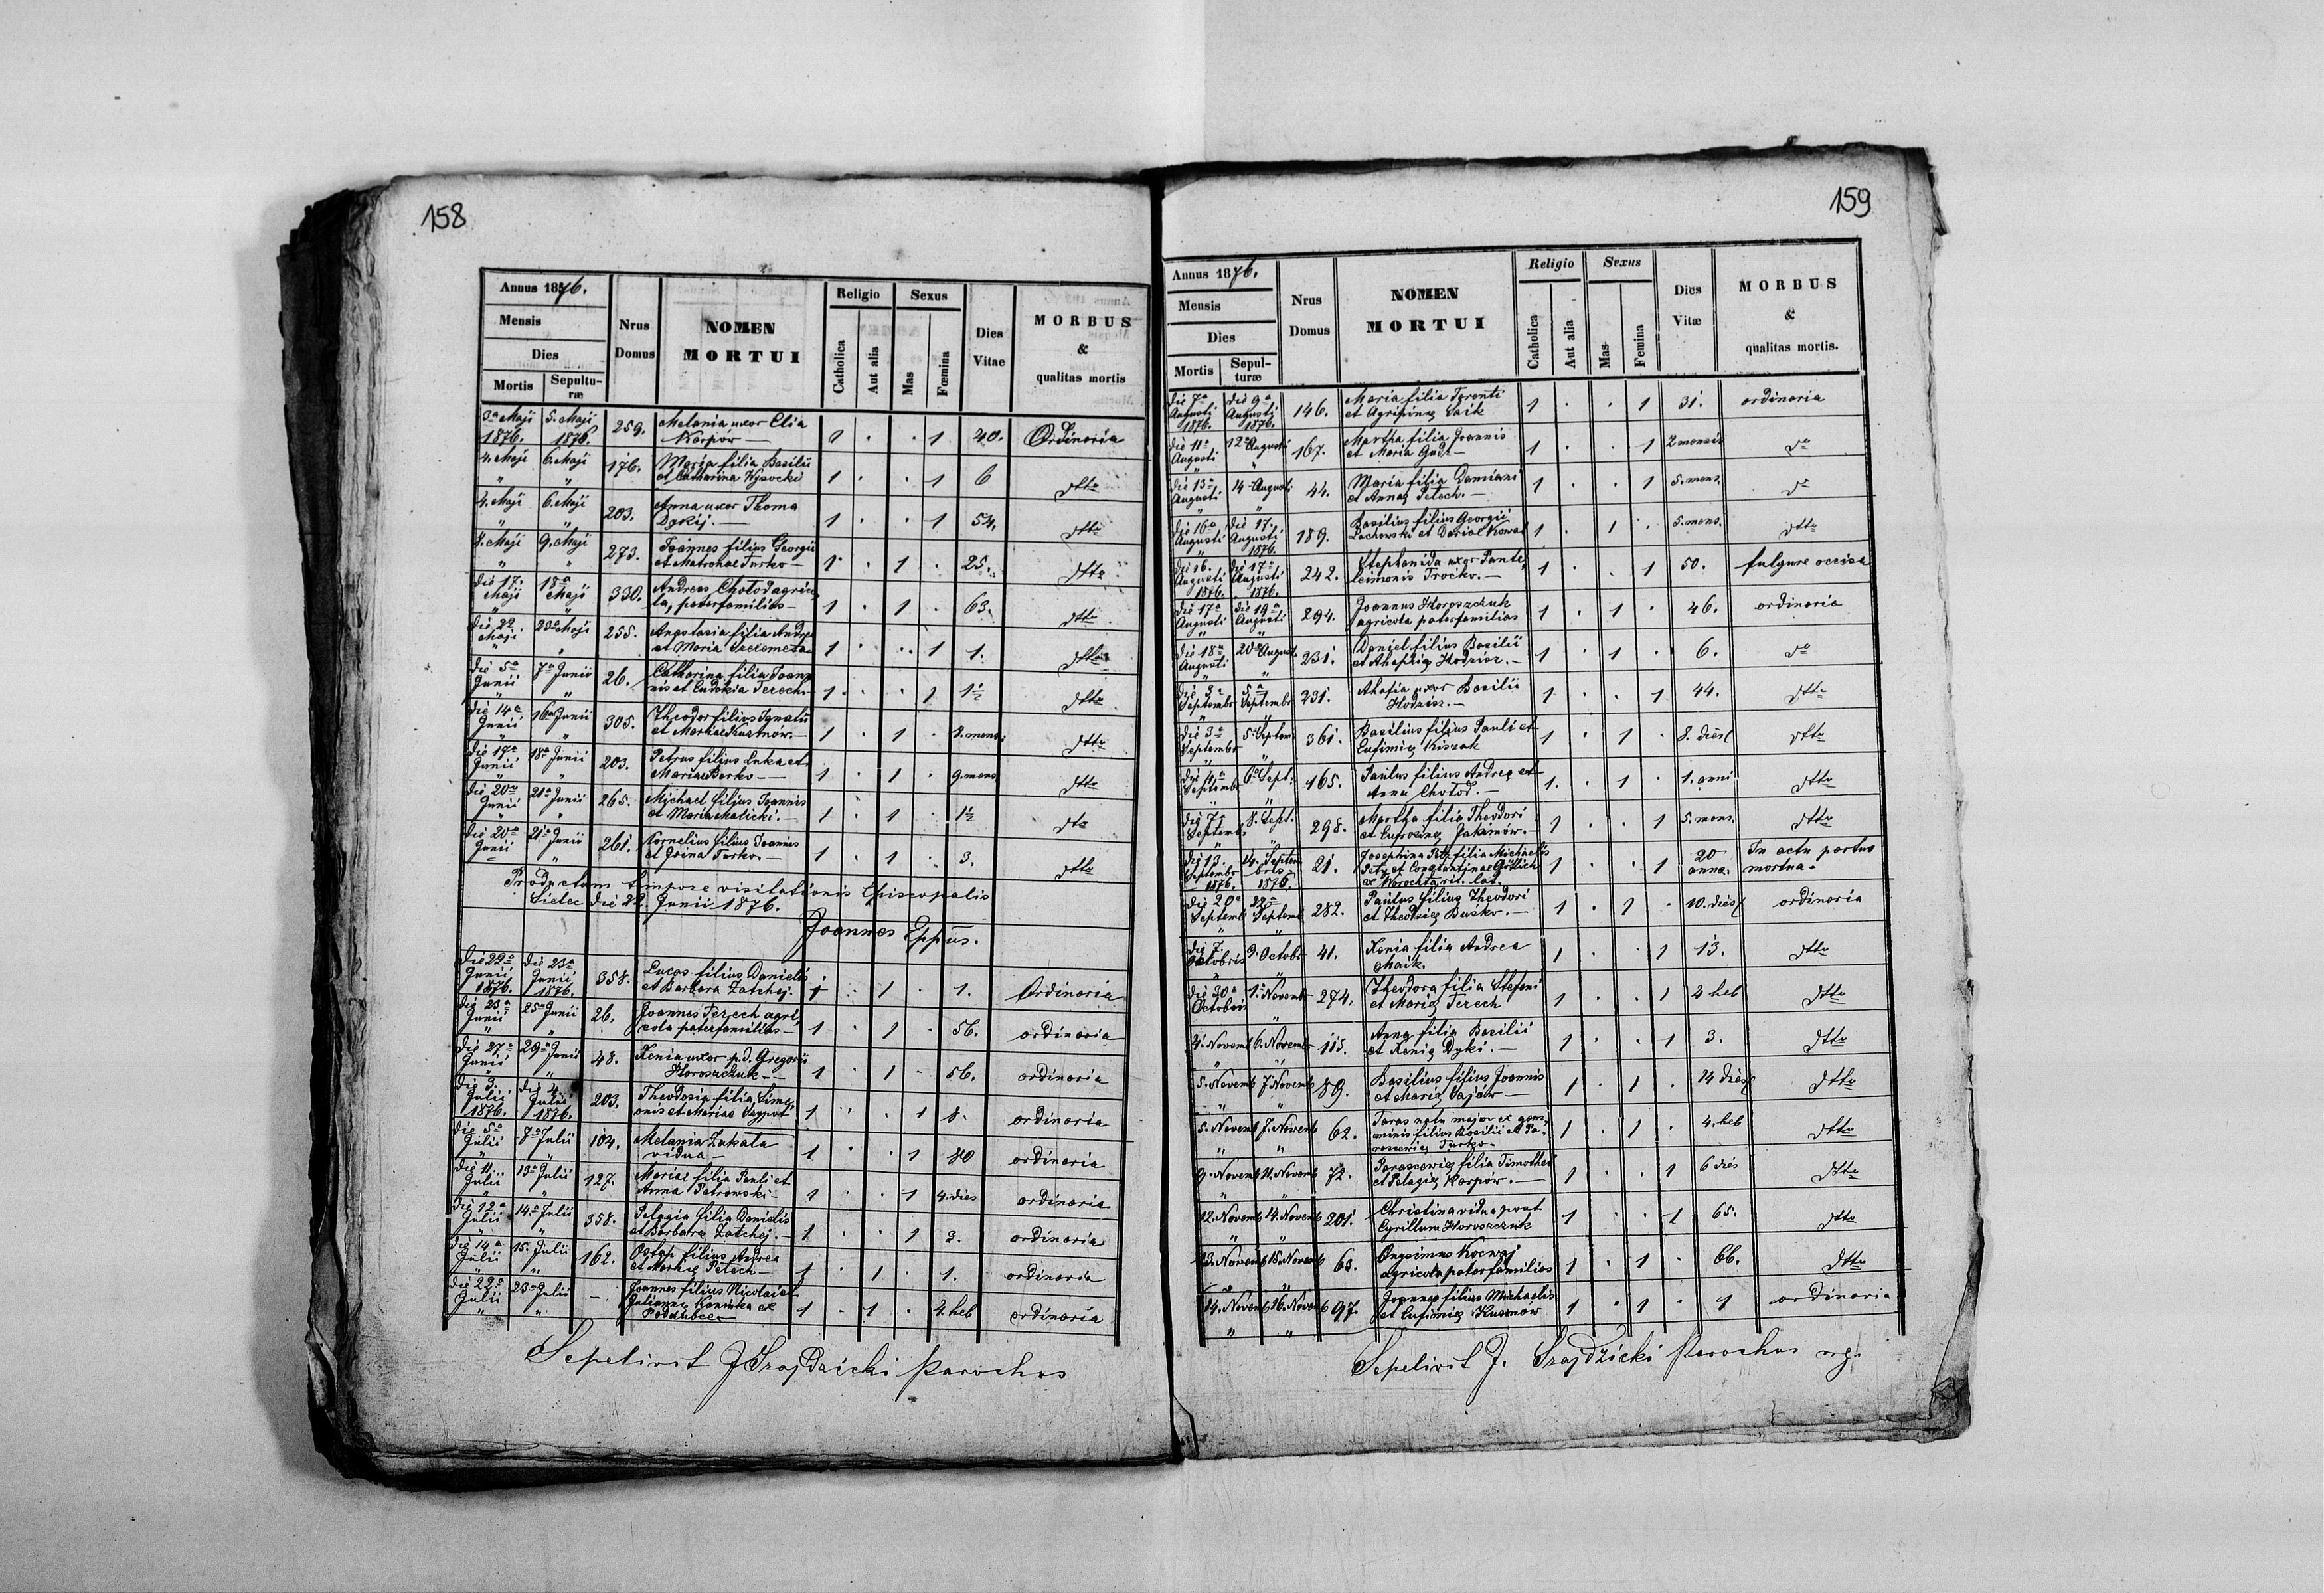 158
Annus 1876.
Mensis
Dies
Mortis
Sepulturæ
Nrus Domus
NOMEN MORTUI
Religio
Catholica
Aut alia
Sexus
Mas
Fœmina
Dies Vitae
MORBUS & qualitas mortis
3a Maji 1876. 5. Maji 1876. 259. Melania uxor Elia Karpów — 1 . . 1 40. Ordinaria
4. Maji " 6. Maji " 176. Maria filia Basilii et Catharina Wysocki 1 . . 1 6 dtto
4. Maji 6. Maji " 203. Anna uxor Thoma Dykij. — 1 . . 1 54. dtto
8. Maji " 9. Maji " 273. Joannes filius Georgii et Matronae Turko — 1 . 1 . 25. dtto
die 17. Maji " 18a Maji " 330. Andreas Chotod agricola, paterfamilias — 1 . 1 . 63. dtto
die 22. Maji 23a Maji " 255. Anastasia filia Andrea et Maria 1 . . 1 1. dtto
die 5a Junii " 7a Junii " 26. Catharina filia Joannis et Eudokia Terech 1 . . 1 1½ dtto
die 14a Junii " 16a Junii 305. Theodor filius Ignatii et Marhae Kuzmów. — 1 . 1 . 8. mens. dtto
die 17a Junii " 18a Junii " 203. Petrus filius Luka et Mariae Berko — 1 . 1 . 9. mens dtto
die 20a Junii " 21a Junii " 265. Michael filius Joannis et Maria Malicki. — 1 . 1 . 1½ dto
die 20a Junii 21a Junii " 261. Kornelius filius Joannis et Irina Turko. — 1 . 1 . 3. dtto
Productum tempore visitationis Episcopalis
Sielec die 22. Junii 1876.
Joannes Eppus.
die 22a Junii 1876. die 23a Junii 1876. 358. Lucas filius Danielis et Barbara Zatchej. 1 . 1 . 1. Ordinaria
die 23a Junii " 25a Junii " 26. Joannes Terech agricola paterfamilias — 1 . 1 . 56. ordinaria
die 27a Junii " 29a Junii " 48. Xenia uxor p.d. Gregorii Horoszczuk — 1 . 1 . 56. ordinaria
die 3. Julii 1876. die 4. Julii 1876. 203. Theodosia filia Simeonis et Mariae 1 . . 1 8. ordinaria
die 5a Julii " 8a Julii " 104. Melania Zakala vidua — 1 . . 1 80 ordinaria
die 11. Julii " 13a Julii " 127. Mariae filia Pauli et Anna Petrowski — 1 . . 1 4. dies ordinaria
die 12a Julii " 14a Julii " 358. Pelagia filia Danielis et Barbara Zatchej. — 1 . . 1 3. ordinaria
die 14a Julii " 15. Julii " 162. Ostap filius Andrea et Marhię Petech — 1 . 1 . 1. ordinaria
die 22a Julii " 23a Julii " — Joannes filius Nicolai et Julianna ex 1 . 1 . 2. heb ordinaria
Sepelivit J Szajdzicki Parochus
159
Annus 1876.
Mensis
Dies
Mortis
Sepulturæ
Nrus Domus
NOMEN MORTUI
Religio
Catholica
Aut alia
Sexus
Mas
Femina
Dies Vitæ
MORBUS & qualitas mortis.
die 7a Augusti 1876. die 9a Augusti 1876. 146. Maria filia Terenti et Agripinę Saik 1 . . 1 31. ordinaria
die 11a Augusti " 12a Augusti " 167. Martha filia Joannis et Maria — 1 . . 1 2 mensis do
die 13a Augusti " 14a Augusti " 44. Maria filia Damiani et Annaę Petech. — 1 . . 1 5. mens. do
die 16a Augusti " die 17. Augusti 1876. 189. Basilius filius Georgii Lachowski et Dariae Kowal 1 . 1 . 5. mens. dtto
die 16. Augusti 1876. die 17a Augusti 1876. 242. Stephanida uxor Panteleimonis Troćko. — 1 . . 1 50. fulgure occisa
die 17a Augusti " die 19a Augusti " 294. Joannus Horoszczuk agricola paterfamilias 1 . 1 . 46. ordinaria
die 18a Augusti 20a August. " 231. Daniel filius Basilii et Ahafkię Hodzisz. — 1 . 1 . 6. do
die 3a Septembr " 5a Septembr " 231. Ahafia uxor Basilii Hodzisz. — 1 . . 1 44. dtto
die 3a Septembr " 5a Septem " 361. Basilius filius Pauli et Eufimię Kiszak 1 . 1 . 8. dies dtto
die 4a Septemb " 6a Sept. " 165. Paulus filius Andreę et Anna Chotod. — 1. . 1 . 1. anni dtto
die 7a Septemb. 8. Sept. " 298. Martha filia Theodori et Eufrozinę Jakimów. — 1 . . 1 5. mens. dtto
die 13. Septembr 1876. 14. Septembris 1876. 21. Josephina filia Michaelis Petz et Constantinae Gottlich ex Korochta rit. lat. 1 . . 1 20 anna. In actu partus mortua.
die 20a Septemb " 22a Septemb " 282. Paulus filius Theodori et Theodsię Buśko. — 1 . 1 . 10. dies ordinaria
die 7. Octobris " 9. Octobr " 41. Xenia filia Andrea Maik. 1 . . 1 13. dtto
die 30a Octobris 1a Novemb " 274. Theodora filia Stefani et Marię Terech 1 . . 1 2 heb dtto
4. Novemb 6. Novembr 115. Anna filia Basilii et Xenię Dyki. — 1 . . 1 3. dtto
5. Novemb " 7. Novemb " 89. Basilius filius Joannis et Marię — 1 . 1 . 14 dies dtto
5. Novemb " 7. Novemb " 62. Taras natu major ex geminis filius Basilii et Parascewię Turko. 1 . 1 . 4. heb dtto
9. Novemb " 11. Novemb " 72. Parascewię filia Timothei et Pelagię Karpów. — 1 . . 1 6 dies dtto
12. Novemb " 14. Novemb " 201. Christina vidua post Cyrillum Horoszczuk 1 . . 1 65. dtto
13. Novemb " 15. Novemb " 63. Onysimus agricola paterfamilias 1 . 1 . 66. dtto
14. Novemb " 16. Novemb " 97. Joannes filius Michaelis et Eufimię Kuzmow 1 . 1 . 1 ordinaria
Sepelivit J. Szajdzicki Parochus